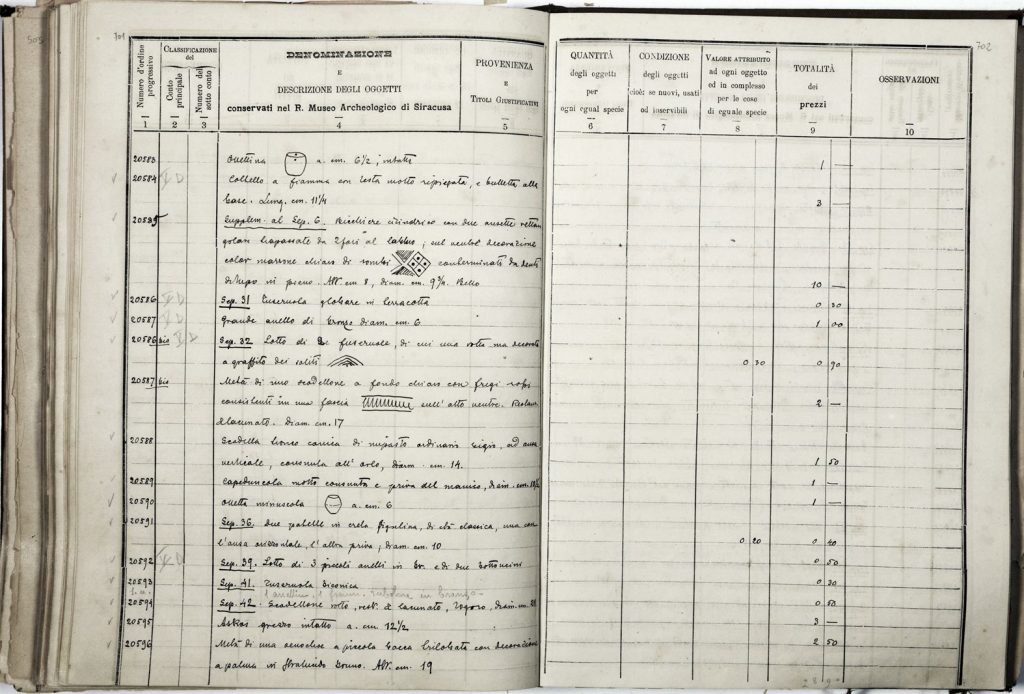 505
701
Numero d'ordine progressivo
CLASSIFICAZIONE del
Conto principale
Numero del sotto conto
DENOMINAZIONE
E
DESCRIZIONE DEGLI OGGETTI
conservati nel R. Museo Archeologico di Siracusa
PROVENIENZA
E
TITOLI GIUSTIFICATIVI
1 2 3 4 5
20583 Ollettina a. cm. 6 1/2, intatta
20584 V D Coltello a fiamma con testa molto ripiegata, e bulletta alla
base. Lung. cm. 11 1/4
20585 Supplem. al Sep. 6. Bicchiere cilindrico con due ansette rettan
golari trapassate da 2 fori al labbro, sul ventre decorazione
color marrone chiaro di rombi conterminati da denti
di lupo in pieno. Alt. cm 8, diam. cm. 9 3/4. Bello
20586 V D Sep. 31 Fuseruola globare in terracotta
20587 V D Grande anello di bronzo diam. cm. 6
20586 bis V D Sep. 32 Lotto di fuseruole, di cui una rotta ma decorata
a graffito dei soliti
20587 bis Metà di uno scodellone a fondo chiaro con fregi rossi
consistenti in una fascia sull'alto ventre. Restaur.
e lacunato. Diam. cm. 17
20588 Scodella tronco conica di impasto ordinario bigio, ad ansa
verticale, consunta all'orlo, diam. cm. 14.
20589 Capeduncola molto consunta e priva del manico, diam. cm.
20590 Olletta minuscola a. cm. 6
20591 Sep. 36. due patelle in creta figulina, di età classica, una con
l'ansa orizzontale, l'altra priva, diam. cm. 10
20592 V D Sep. 39. Lotto di 3 piccoli anelli in br. e di due bottoncini
20593 Sep. 41. Fuseruola biconica
20594 Sep. 42. Scodellone rotto, rest. e lacunato, rozzo, diam. cm.
20595 Askos grezzo intatto a. cm. 12 1/2
20596 Metà di una oenochoe a piccola bocca trilobata con decorazione
a palma in fondo bruno. Alt. cm. 19
702
QUANTITÀ
degli oggetti
per
ogni egual specie
CONDIZIONE
degli oggetti
cioè: se nuovi, usati
od inservibili
VALORE ATTRIBUITO
ad ogni oggetto
od in complesso
per le cose
di eguale specie
TOTALITÀ
dei
prezzi
OSSERVAZIONI
6 7 8 9 10
1 —
3 —
10 —
0 30
1 00
0 30 0 90
2 —
1 50
1 —
1 —
0 20 0 40
0 50
0 30
0 50
3 —
2 50